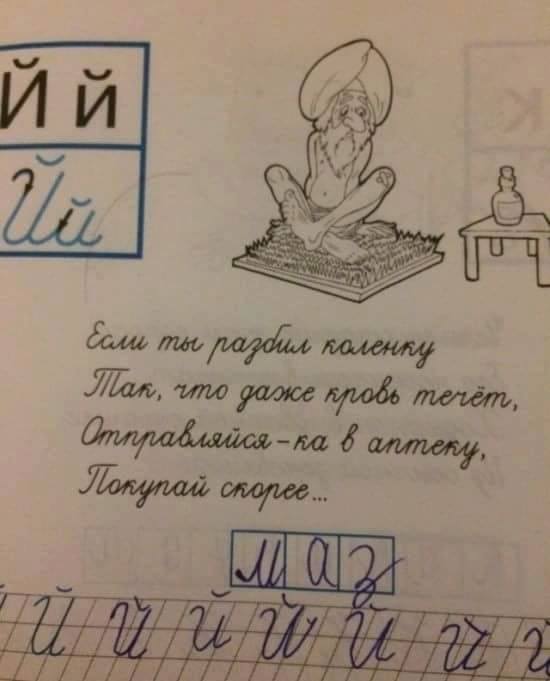 Й й
Й й
Если ты разбил коленку
Так, что даже кровь течёт,
Отправляйся-ка в аптеку,
Покупай скорее...
маз
Й й й й й й й